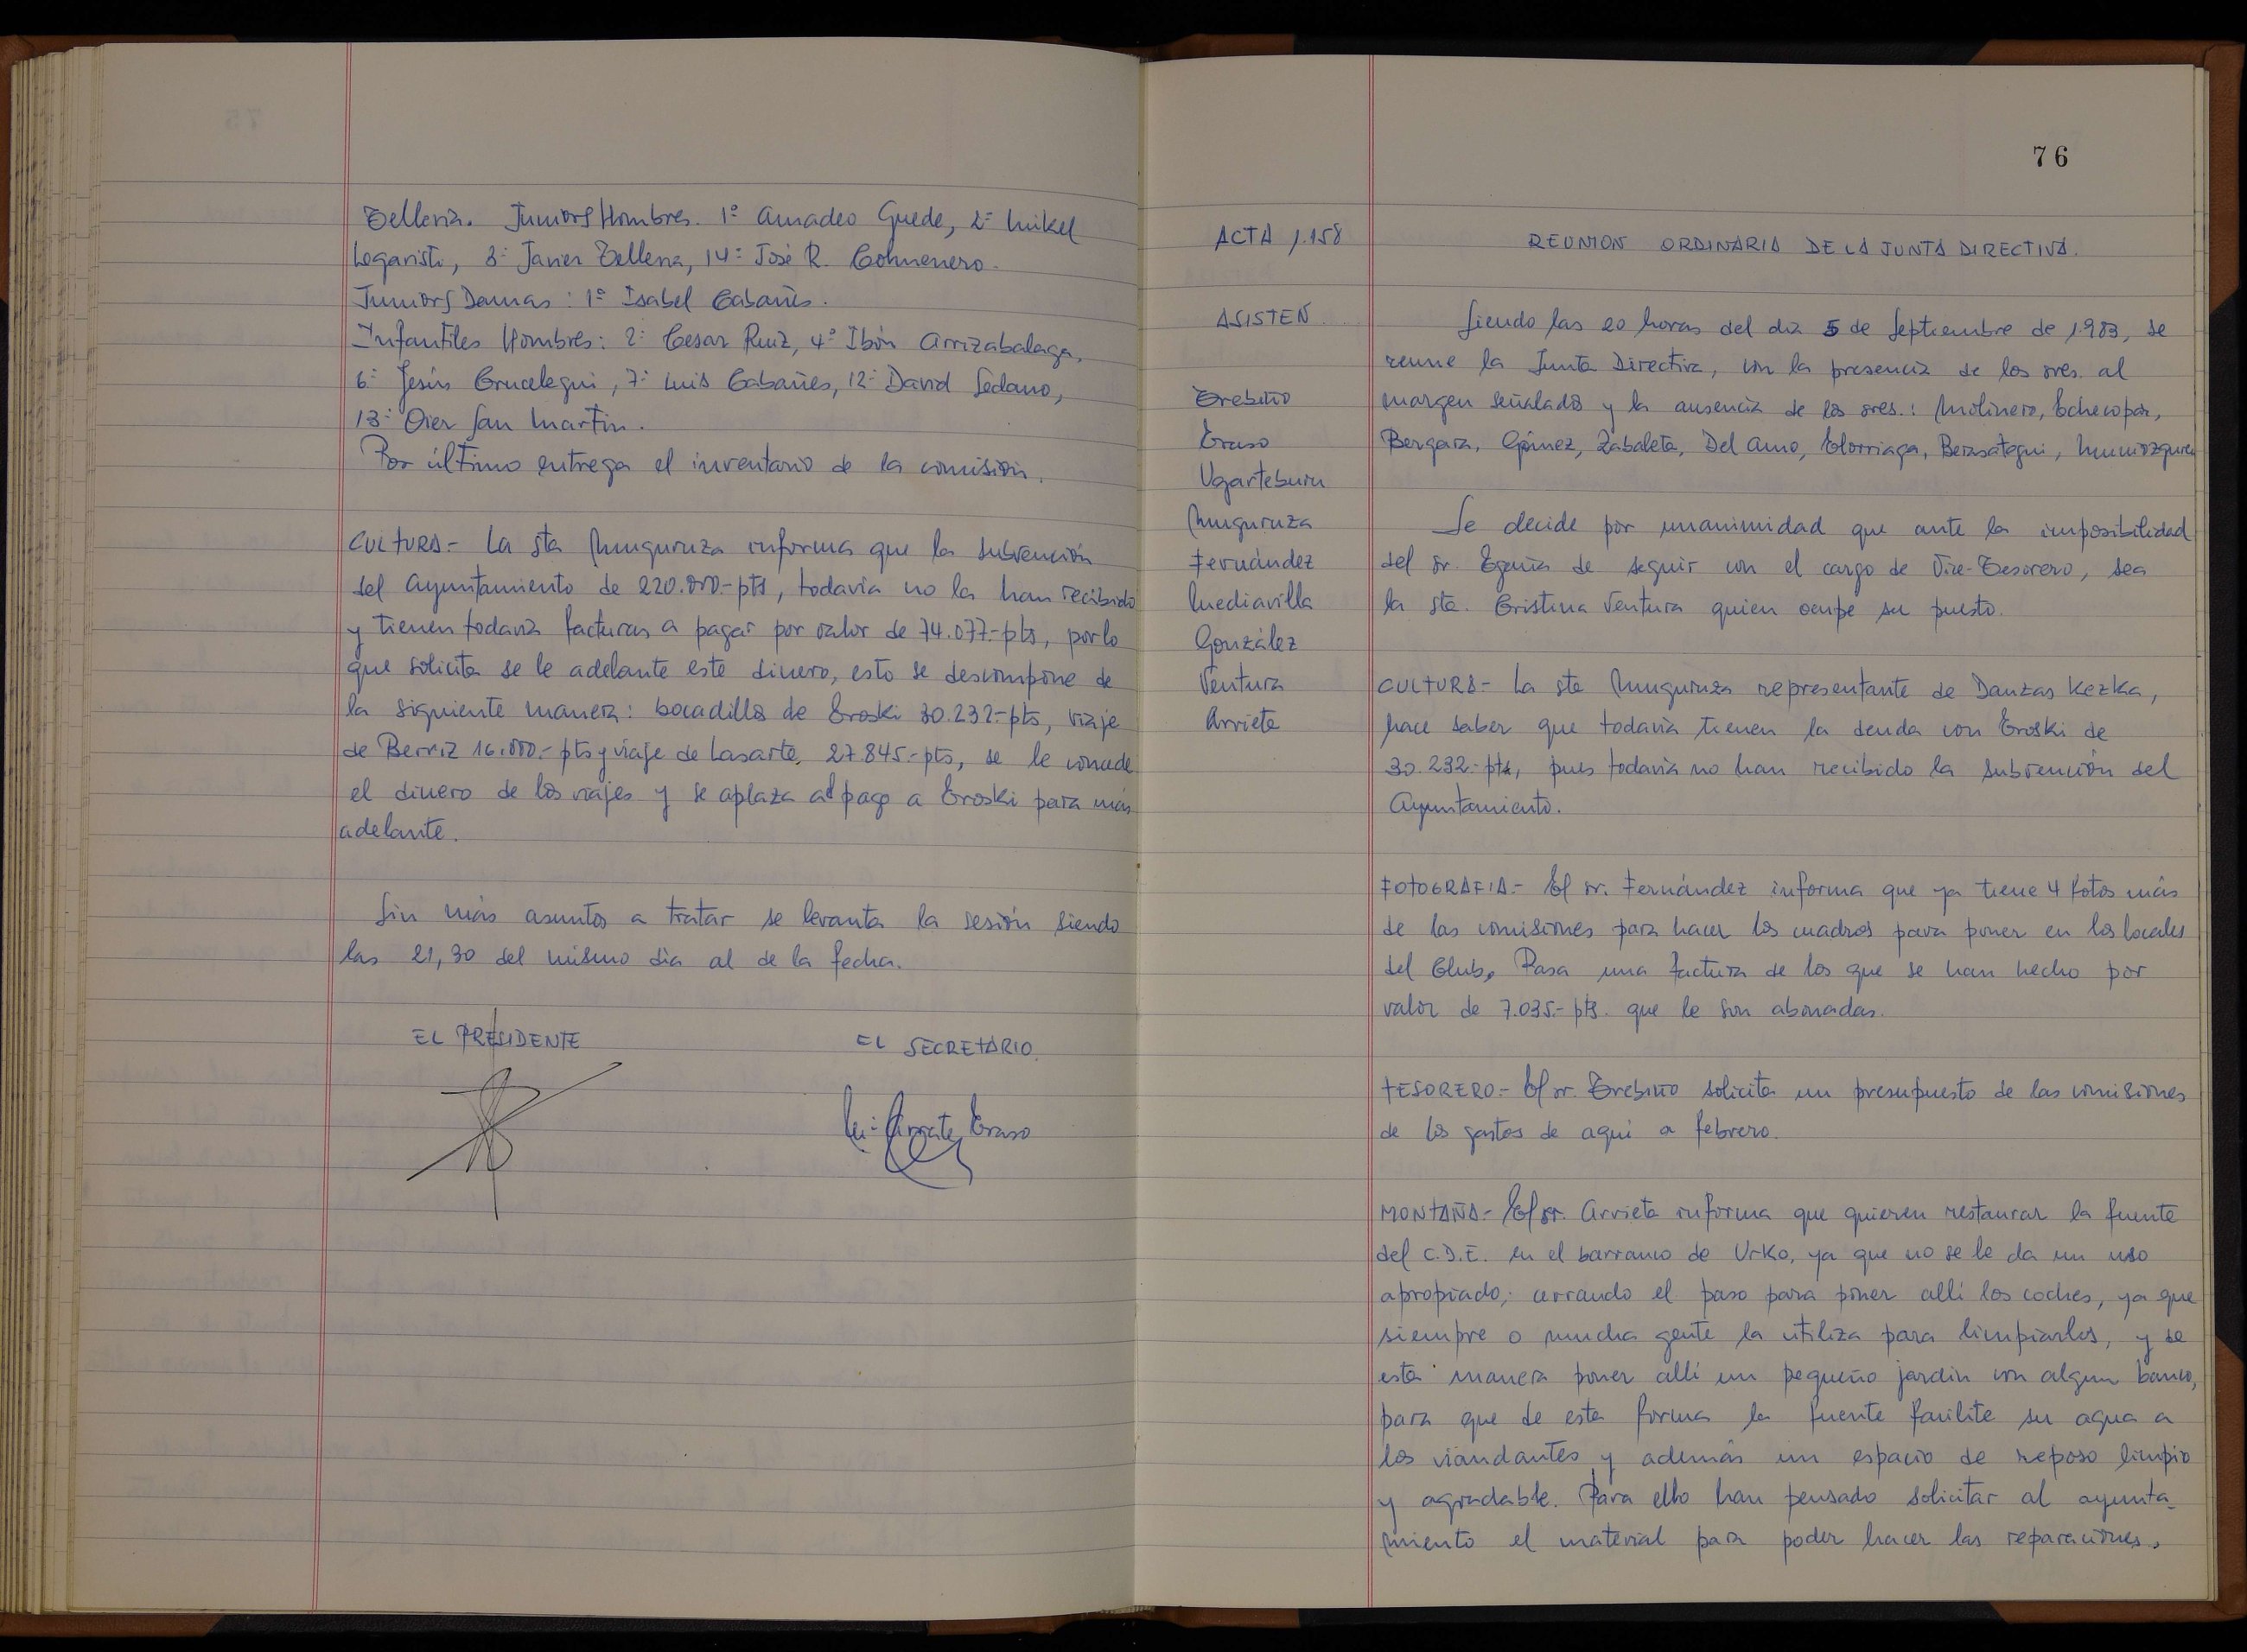 Telleria. Juniors Hombres. 1º Amadeo Guede, 2º Mikel
Legaristi, 3º Javier Telleria, 14º José R. Colmenero.
Juniors Damas: 1ª Isabel Cabañes.
Infantiles Hombres: 2º Cesar Ruiz, 4º Ibón Arrizabalaga,
6º Jesús Crucelegui, 7º Luis Cabañes, 12º David Sedano,
13º Oier San Martín.
Por último entrega el inventario de la comisión.
CULTURA.- La sta Muguruza informa que la subvención
del Ayuntamiento de 220.000.-pts, todavía no la han recibido
y tienen todavía facturas a pagar por valor de 74.077.-pts, por lo
que solicita se le adelante este dinero, esto se descompone de
la siguiente manera: bocadillos de Eroski 30.232.-pts, viaje
de Berriz 16.000.-pts y viaje de Lasarte, 27.845.-pts, se le concede
el dinero de los viajes y se aplaza al pago a Eroski para más
adelante.
Sin más asuntos a tratar se levanta la sesión siendo
las 21,30 del mismo día al de la fecha.
EL PRESIDENTE
EL SECRETARIO.
Mª Arrate Eraso
76
ACTA 1.158
REUNION ORDINARIA DE LA JUNTA DIRECTIVA.
ASISTEN
Trebiño
Eraso
Ugarteburu
Muguruza
Fernández
Mediavilla
González
Ventura
Arrieta
Siendo las 20 horas del día 5 de Septiembre de 1.983, se
reune la Junta Directiva, con la presencia de los sres. al
margen señalados y la ausencia de los sres.: Molinero, Echecopar,
Bergara, Gómez, Zabaleta, Del Amo, Elorriaga, Berasategui, Mumiozguren
Se decide por unanimidad que ante la imposibilidad
del sr. Egaña de seguir con el cargo de Vice-Tesorero, sea
la sta. Cristina Ventura quien ocupe su puesto.
CULTURA.- La sta Muguruza representante de Danzas Kezka,
hace saber que todavía tienen la deuda con Eroski de
30.232.-pts, pues todavía no han recibido la subvención del
Ayuntamiento.
FOTOGRAFIA.- El sr. Fernández informa que ya tiene 4 fotos más
de las comisiones para hacer los cuadros para poner en los locales
del Club, Pasa una factura de los que se han hecho por
valor de 7.035.-pts. que le son abonadas.
TESORERO.- El sr. Trebiño solicita un presupuesto de las comisiones
de los gastos de aquí a febrero.
MONTAÑA.- El sr. Arrieta informa que quieren restaurar la fuente
del C.D.E. en el barranco de Urko, ya que no se le da un uso
apropiado, cerrando el paso para poner allí los coches, ya que
siempre o mucha gente la utiliza para limpiarlos, y de
esta manera poner allí un pequeño jardín con algun banco,
para que de esta forma la fuente facilite su agua a
los viandantes y además un espacio de reposo limpio
y agradable. Para ello han pensado solicitar al ayunta-
miento el material para poder hacer las reparaciones.